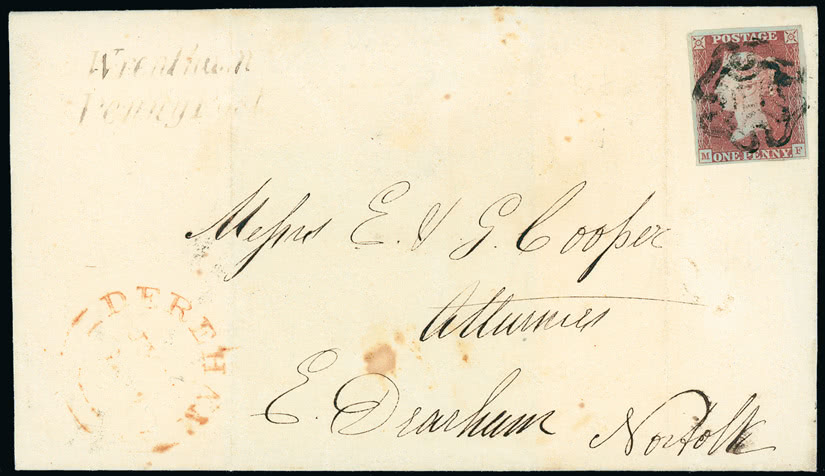 Wrentham
Penny Post
POSTAGE
M ONE PENNY. F
Messrs E. & G. Cooper
Attornies
E. Dearham Norfolk
DEREHAM